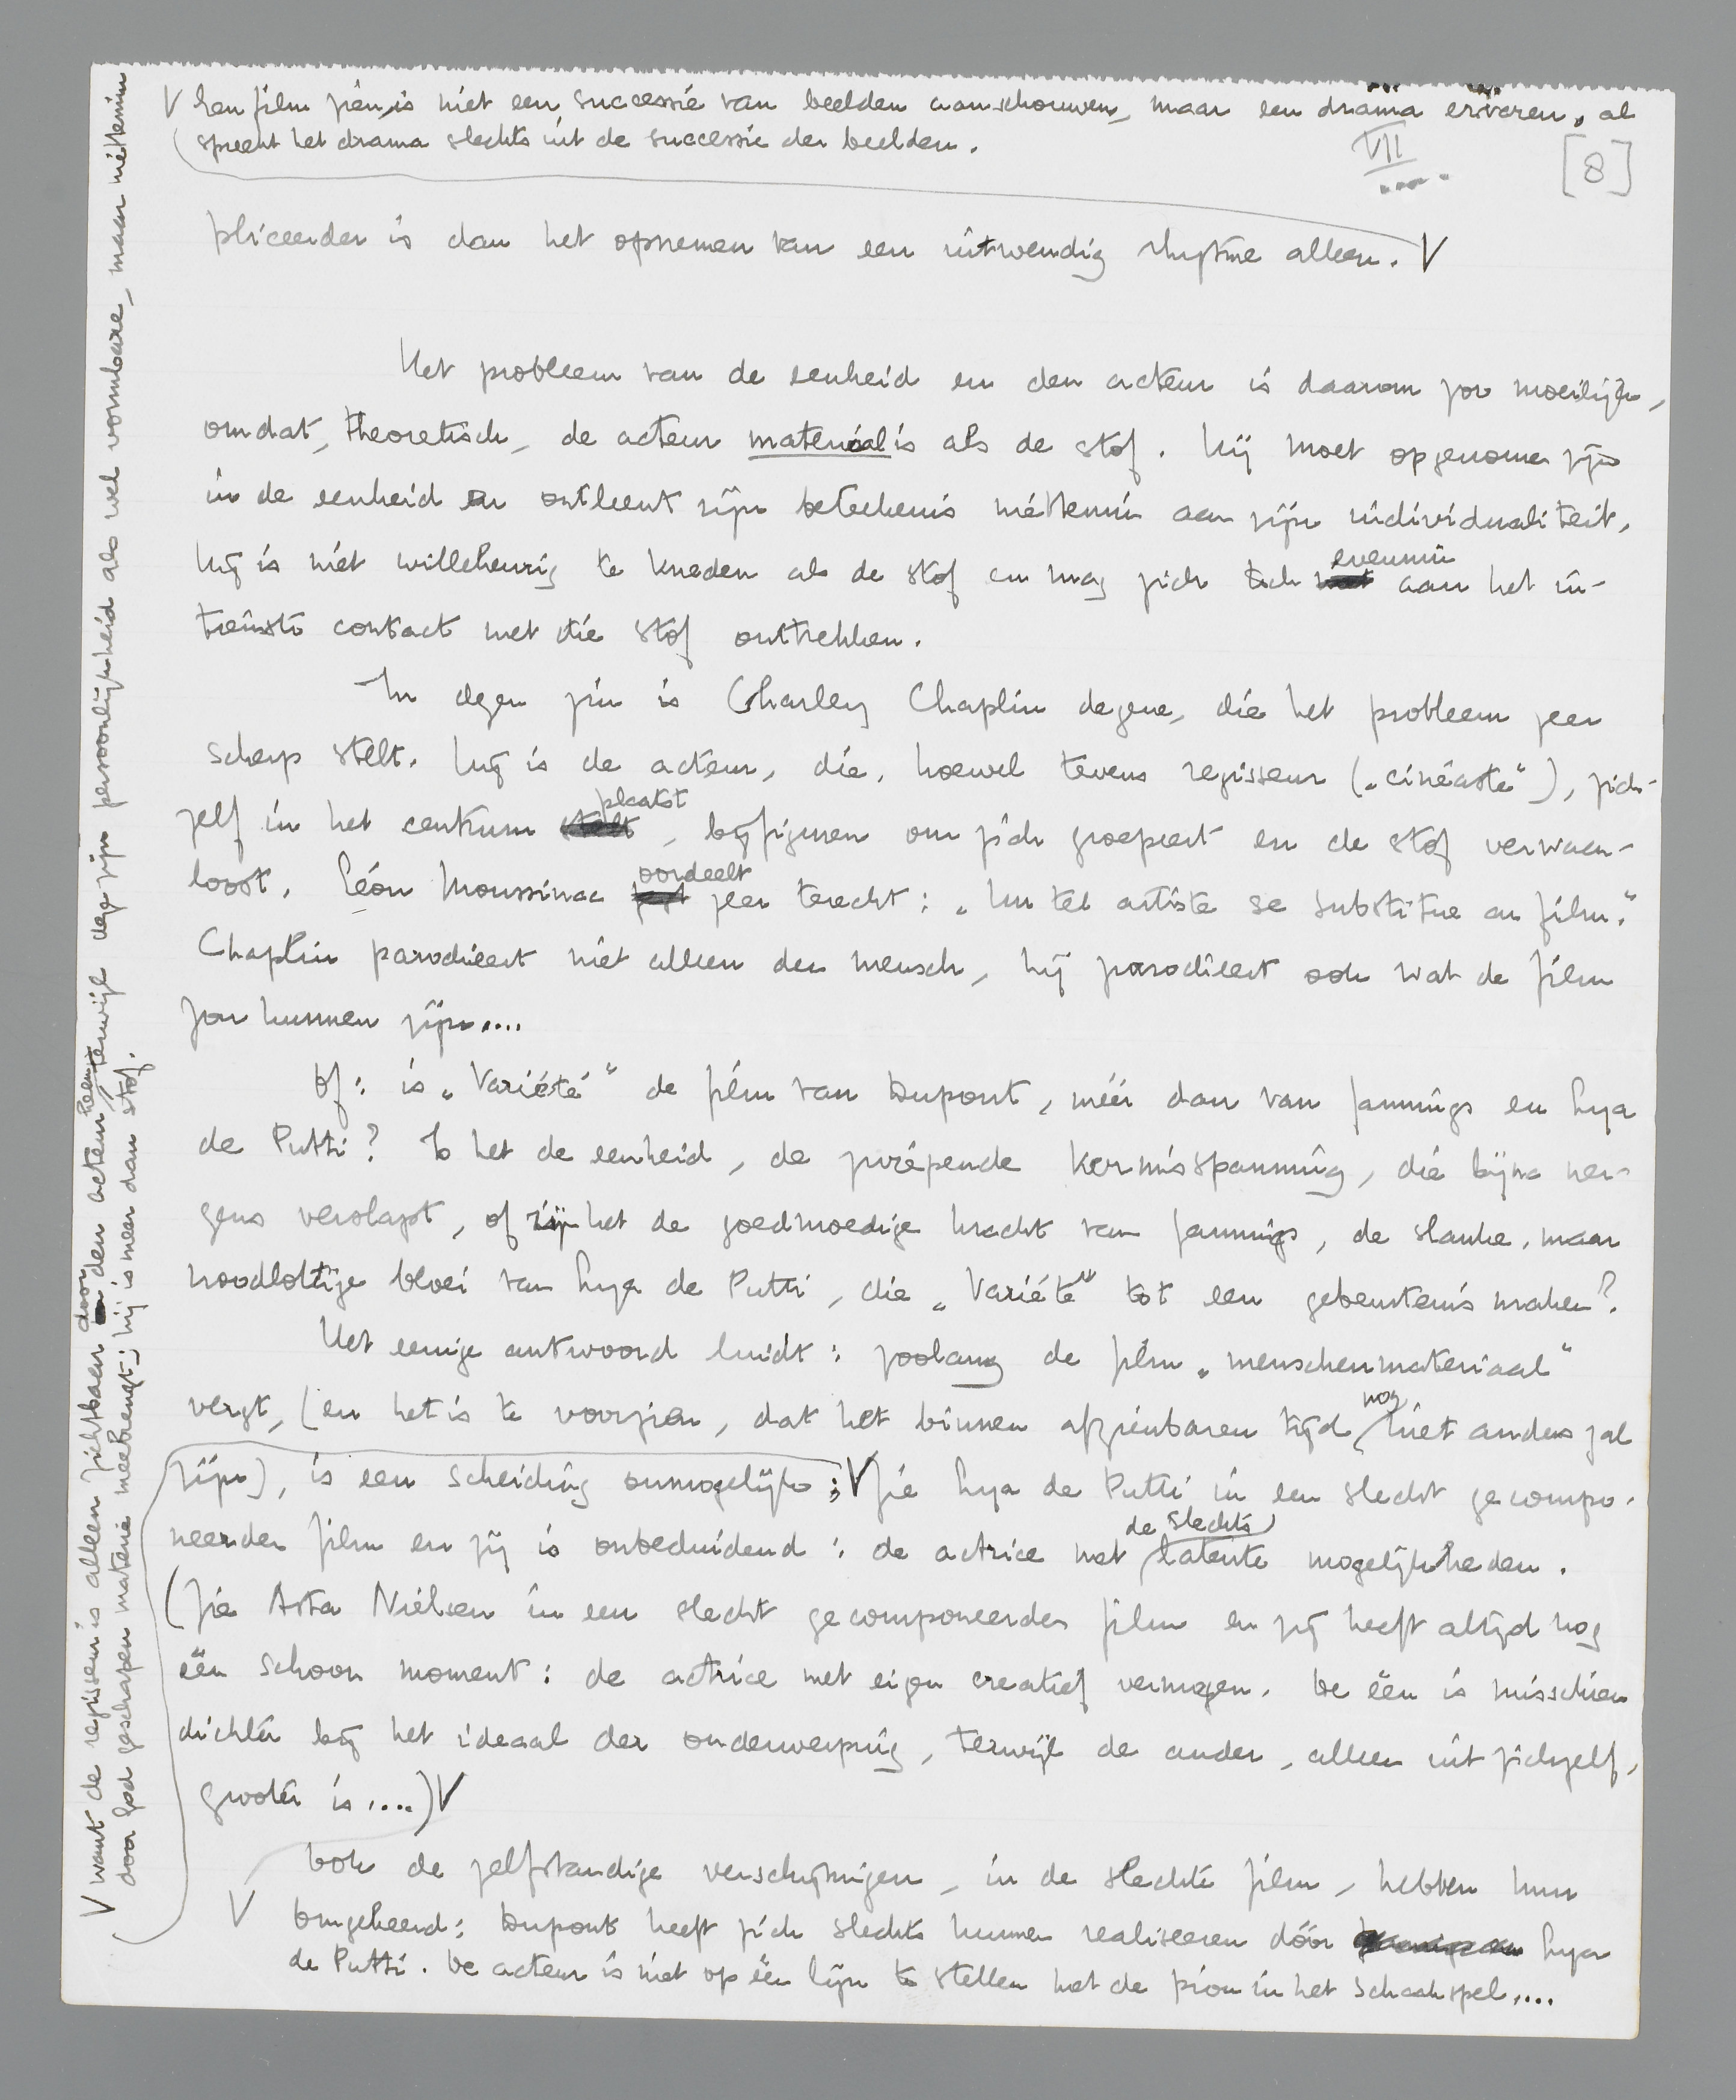 V Een film zien is niet een successie van beelden aanschouwen, maar een drama ervaren, al
spreekt het drama slechts uit de successie der beelden.
VII
[8]
pliceerder is dan het opnemen van een uitwendig rhytme alleen. V
Het probleem van de eenheid en den acteur is daarom zoo moeilijk,
omdat, theoretisch, de acteur materiaal is als de stof. Hij moet opgenomen zijn
in de eenheid en ontleent zijn beteekenis niettemin aan zijn individualiteit.
Hij is niet willekeurig te kneden als de stof en mag zich toch evenmin aan het in-
tiemste contact met die stof onttrekken.
In dezen zin is Charley Chaplin degene, die het probleem zeer
scherp stelt. Hij is de acteur, die, hoewel tevens regisseur („cinéaste“), zich-
zelf in het centrum stelt plaatst, bijfiguren om zich groepeert en de stof verwaar-
loost. Léon Moussinac zegt oordeelt zeer terecht: „Un tel artiste se substitue au film.“
Chaplin parodieert niet alleen den mensch, hij parodieert ook wat de film
zou kunnen zijn....
Of: is „Variété“ de film van Dupont, méér dan van Jannings en Lya
de Putti? Is het de eenheid, de zwiepende kermisspanning, die bijna ner-
gens verslapt, of zijn het de goedmoedige kracht van Jannings, de slanke, maar
noodlottige bloei van Lya de Putti, die „Variété“ tot een gebeurtenis maken?
Het eenige antwoord luidt: zoolang de film „menschenmateriaal“
vergt, (en het is te voorzien, dat het binnen afzienbaren tijd nog niet anders zal
zijn), is een scheiding onmogelijk; V Zie Lya de Putti in een slecht gecompo-
neerden film en zij is onbeduidend: de actrice met de slechts latente mogelijkheden.
(Zie Asta Nielsen in een slecht gecomponeerden film en zij heeft altijd nog
één schoon moment: de actrice met eigen creatief vermogen. De één is misschien
dichter bij het ideaal der onderwerping, terwijl de ander, alleen uit zichzelf,
grooter is....) V
Ook de zelfstandige verschijningen, in de slechte film, hebben hun
V Omgekeerd: Dupont heeft zich slechts kunnen realiseeren dóór Lya
de Putti. De acteur is niet op één lijn te stellen met de pion in het schaakspel....
V want de regisseur is alleen zichtbaar door den acteur heen, terwijl deze zijn persoonlijkheid als wel vormbare, maar niettemin
door God geschapen materie meebrengt; hij is meer dan stof.